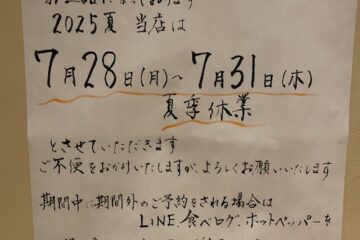 2025夏 当店は
7月28日(月)~7月31日(木)
夏季休業
とさせていただきます
ご不便をおかけいたしますが、よろしくお願いいたします
期間中に期間外のご予約をされる場合は
LINE、食べログ、ホットペッパーを